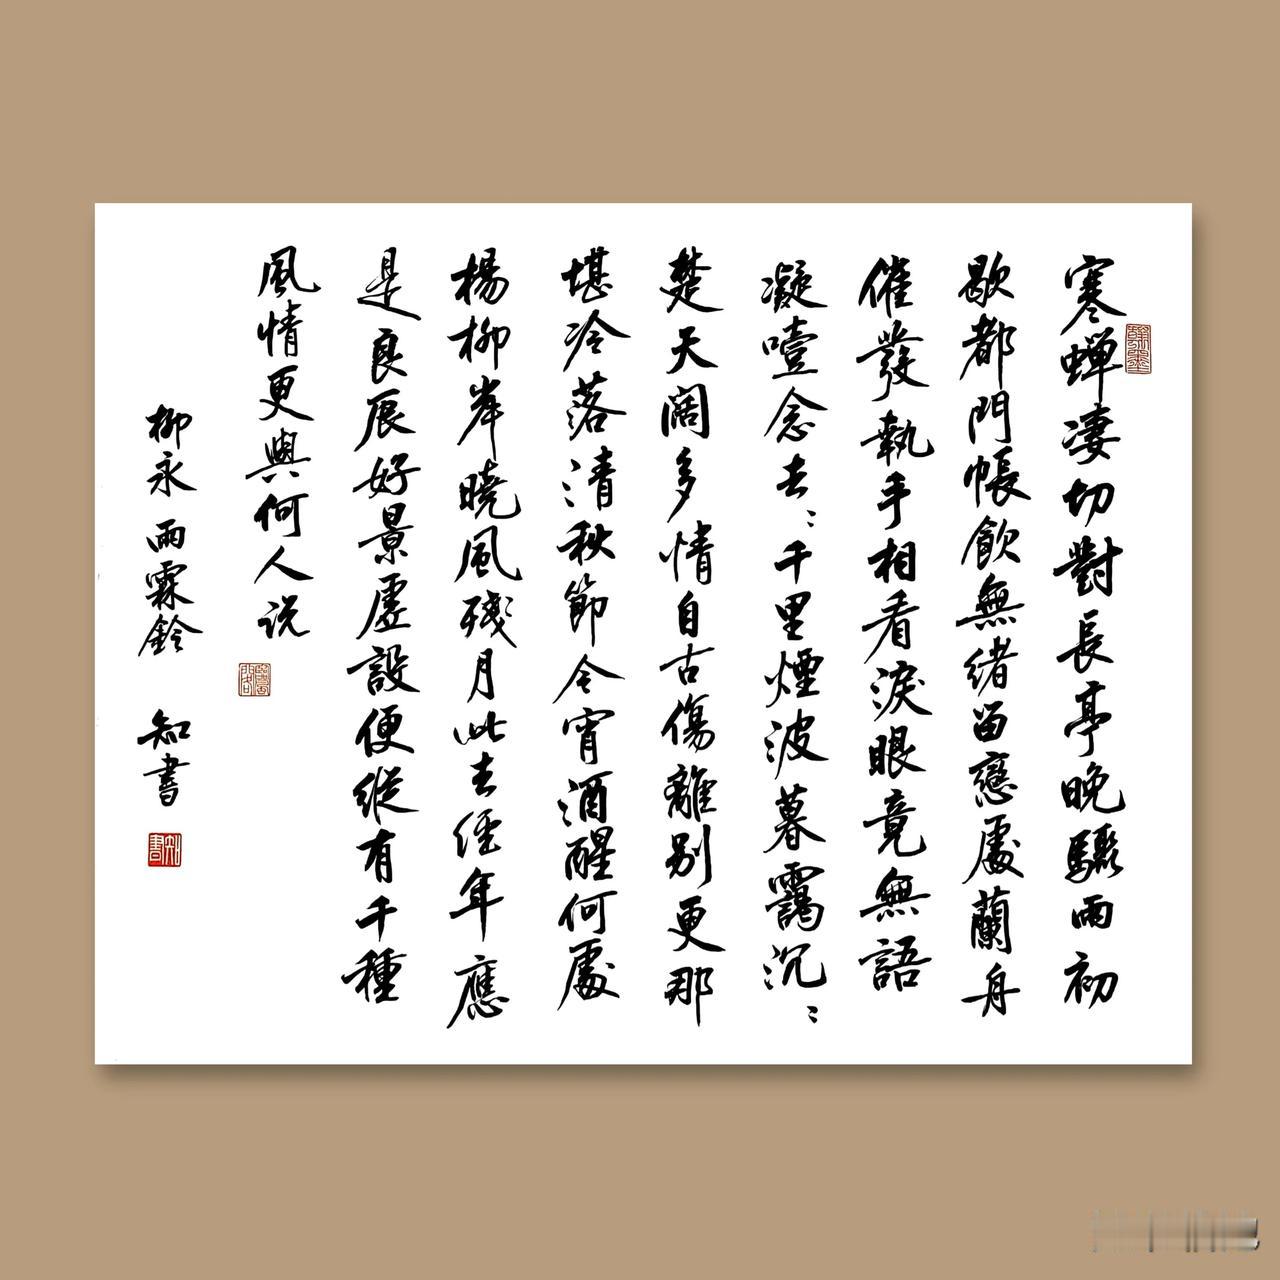 寒蟬凄切對長亭晚驟雨初
歇都門帳飲無緒留戀處蘭舟
催發執手相看淚眼竟無語
凝噎念去〻千里煙波暮靄沉〻
楚天闊多情自古傷離別更那
堪冷落清秋節今宵酒醒何處
楊柳岸曉風殘月此去經年應
是良辰好景虛設便縱有千種
風情更與何人説
柳永 雨霖鈴 知書
知書